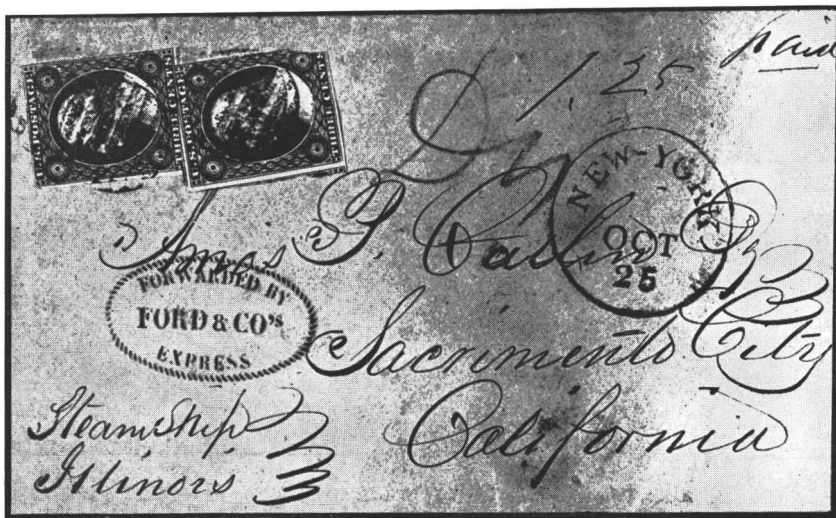 paid
1.25
U.S. POSTAGE
NEW-YORK
OCT
25
Amos P. Catlin Esq
FORWARDED BY
FORD & CO'S
EXPRESS
Sacrimento City
California
Steamship
Illinois